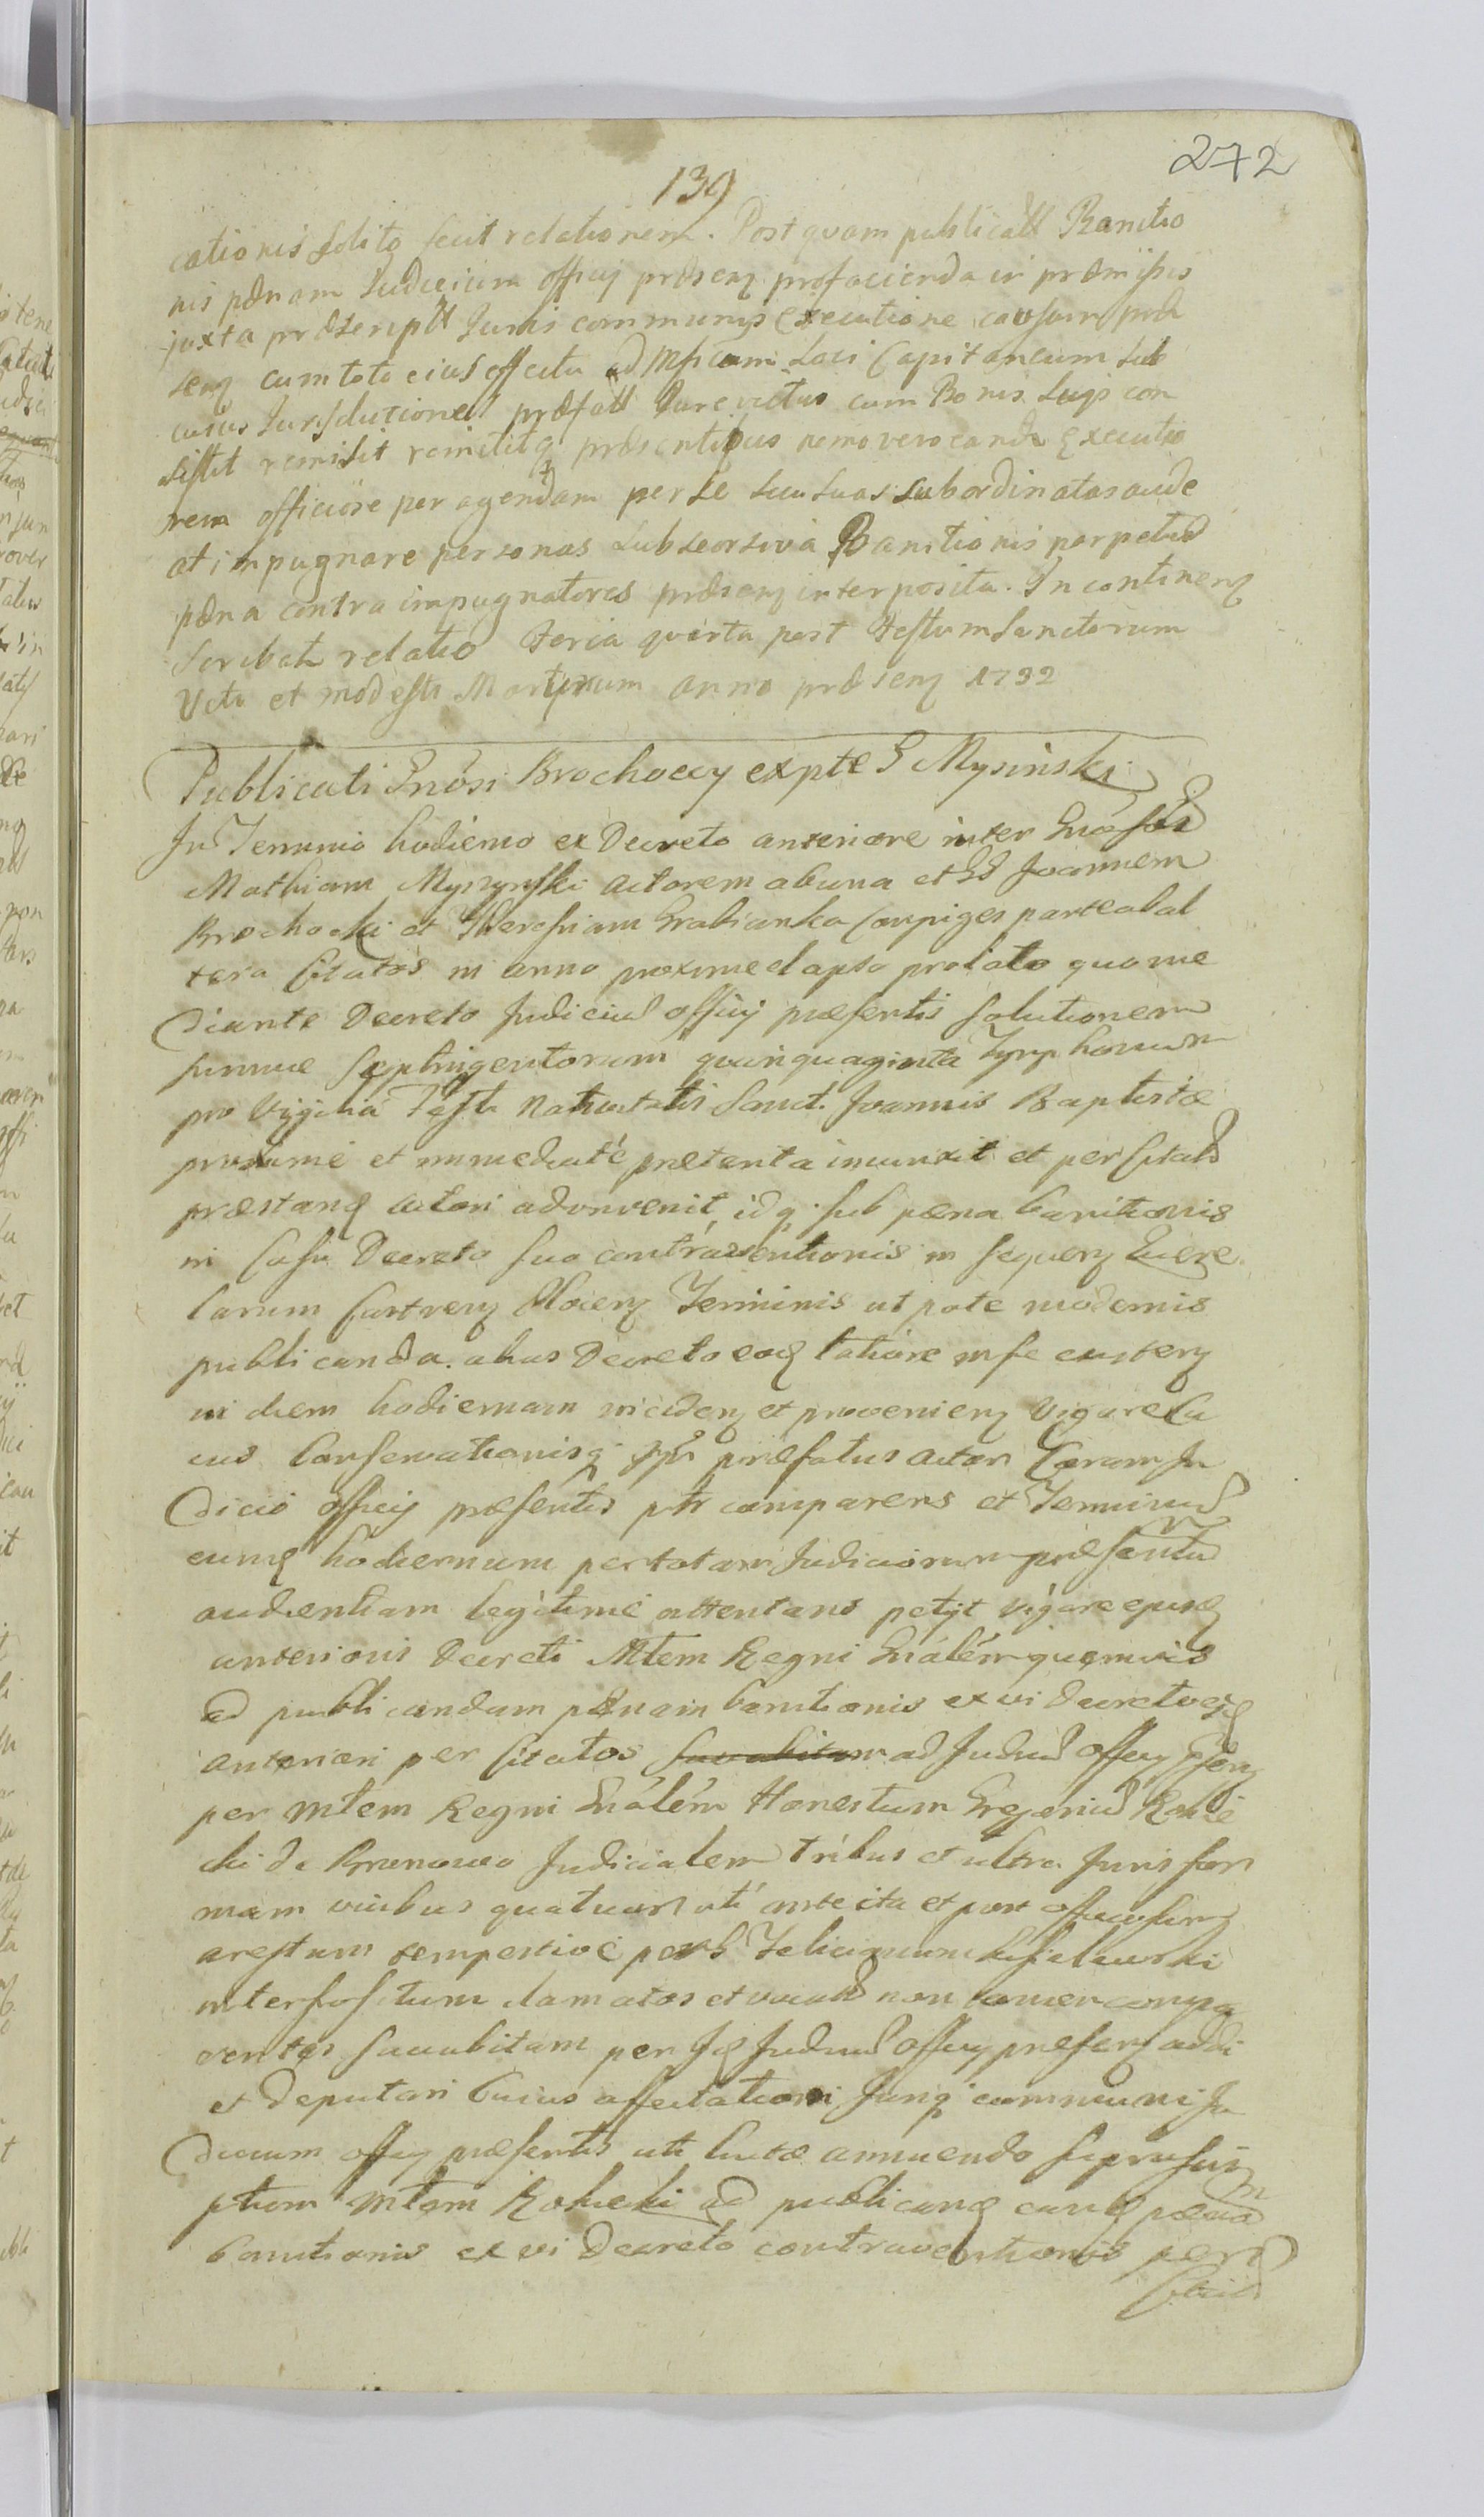 272
139
cationis solito fecit relationem. Post quam publicatt Banitio
nis pænam Judicium officij præsenz profacienda in præmissis
juxta præscriptt Juris communis Executione causam præ
senz cum toto eius effectu ad Mficum Loci Capitaneum sub
cuius Jurisdictione præfatt Jure victus cum Bonis suis con
sistit remisit remititq præsentibus nemo vero eande Executio
nem officiose per agendam per se seu suas subordinatas aude
at impugnare personas sub seorsiva Banitionis perpetuæ
pæna contra impugnatores præsenz interposita. In continenz
scribatt relatio Feria quarta post Festum Sanctorum
Viti et modesti Martyrum anno præsenz 1792
Publicati Gnosi Brochoccy ex pte G Mysinski
In Termino hodierno ex Decreto anteriore inter
Mathiam Myszynski actorem ab una et GG Joannem
Brochocki et Theresiam Grabianka Conjuges parte ab al
tera Citatos in anno proxime elapso prolato quo me
diante Decreto Judicium officij præsentis solutionem
summæ septingentorum quinquaginta Tynphonum
pro Vigilia Festi Nativitatis Sancti Joannis Baptistæ
proxime et immediate preterita iniunxit et per Citatos
præstanz actori adinvenit, idq sub pæna banitionis
in Casu Decreto suo contraventionis in sequenz Quere
larum Castrenz Terminis ut pote modernis
publicanda. cuius Decreto eoq latiore in se existenz
in diem hodiernam incidenz et provenienz Vigore Ca
usæ Conservationisq præfatus actor Coram Ju
dicio officij præsentis ptr comparens et Terminum
eunq hodiernum per totam Judiciorum præsentium
audientiam legitime attentans petijt vigore ejusq
anterioris Decreti Mtem Regni Gnalem quemvis
ad publicandum pænam banitionis ex vi Decreto eoq
anteriori per Citatos succubitam ad Judum officij psenz
per Mtem Regni Gnalem Honestum Gregorium Rokic
ki de Brunowo Judicialem tribus et ultra Juris for
mam vicibus quatuor uti ante ita et post officiosum
arestum tempestive per G Felicianum Kisielewski
interpositum clamatos et vocatos non tamen compa
rentes succubitam per Jq Judium officij præsenz addi
et deputari Cuius affectationi Juriq communi Ju
dicium officij præsentis uti Justæ annuendo suprascri
ptum Mtem Rokicki ad publicanq eanq pænam
banitionis ex vi Decreto contraventionis per
Citatos